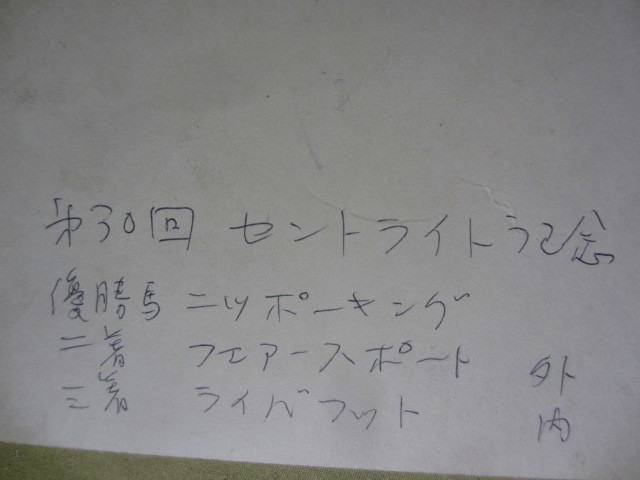 第30回 セントライト記念
優勝馬 ニツポーキング
二着 フエアースポート 外
三着 ライバフット 内